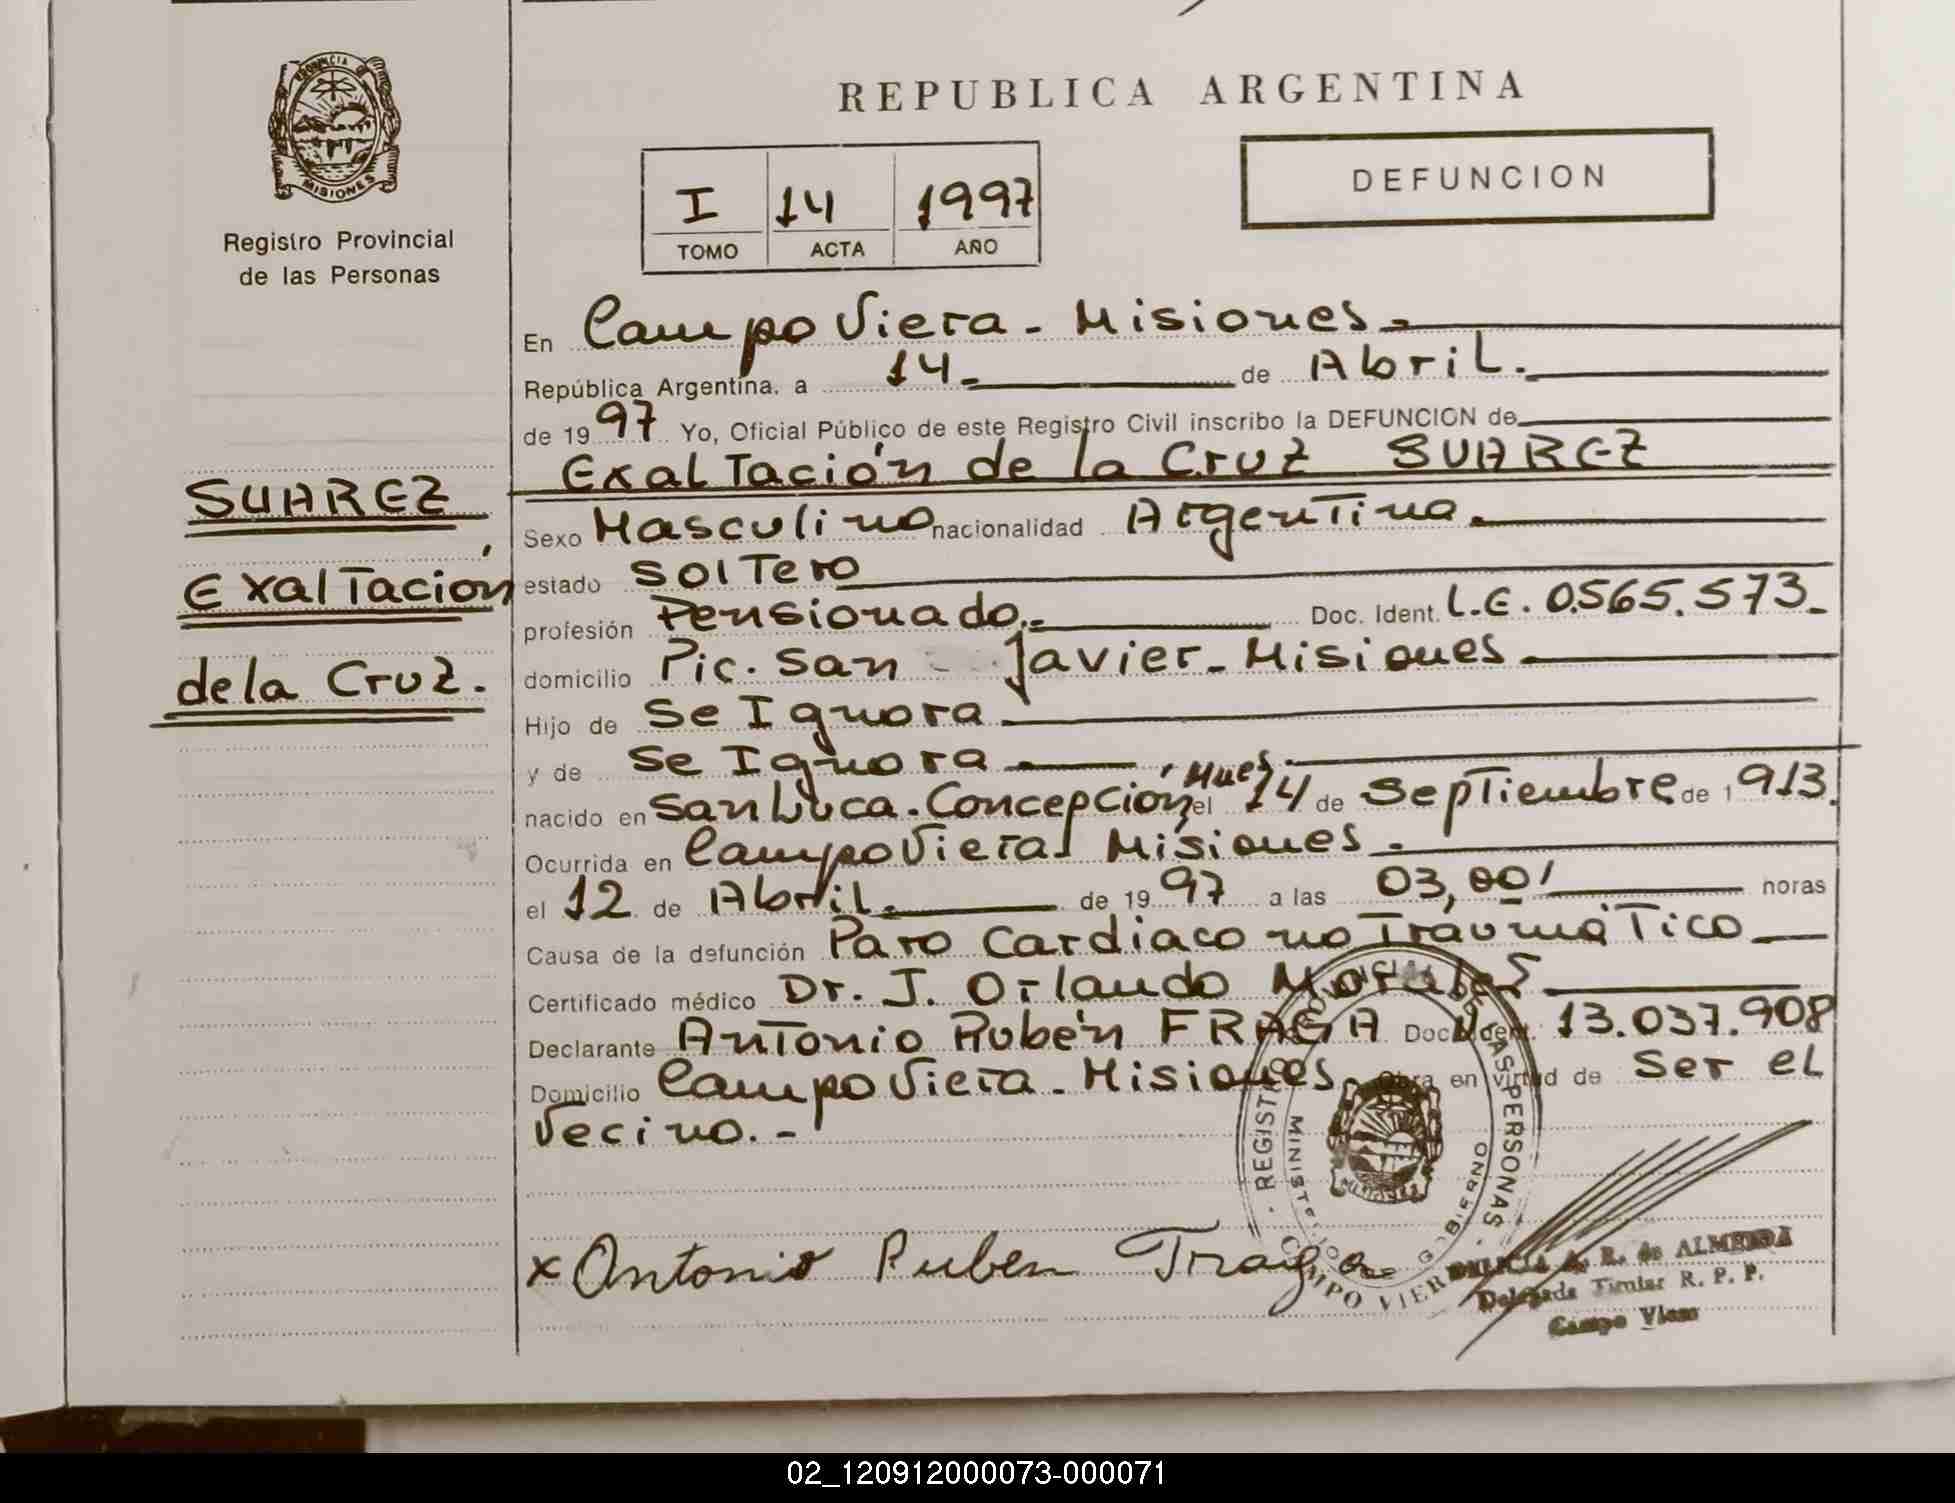 PROVINCIA DE
MISIONES
Registro Provincial
de las Personas
SUAREZ
Exaltación
de la Cruz.
REPUBLICA ARGENTINA
I 14 1997
TOMO ACTA AÑO
DEFUNCION
En Campo Viera - Misiones.-
República Argentina, a 14.- de Abril.-
de 1997 Yo, Oficial Público de este Registro Civil inscribo la DEFUNCION de
Exaltación de la Cruz SUAREZ
Sexo Masculino nacionalidad Argentina.-
estado Soltero
profesión Pensionado.- Doc. Ident. L.E. 0.565.573.-
domicilio Pic. San Javier - Misiones
Hijo de Se Ignora
y de Se Ignora
nacido en San Luca. Concepción, Mnes. el 14 de Septiembre de 1913.
Ocurrida en Campo Viera, Misiones.-
el 12 de Abril.- de 1997 a las 03,00' horas
Causa de la defunción Paro Cardiaco no Traumático
Certificado médico Dr. J. Orlando Morales
Declarante Antonio Rubén FRAGA Doc. Ident. 13.037.908
Domicilio Campo Viera - Misiones. Obra en virtud de Ser el
Vecino.-
x Antonio Ruben Fraga
REGISTRO PROVINCIAL DE LAS PERSONAS
MINISTERIO GOBIERNO
CAMPO VIERA
A. R. de ALMEIDA
Delegada Titular R. P. P.
Campo Viera
02_120912000073-000071